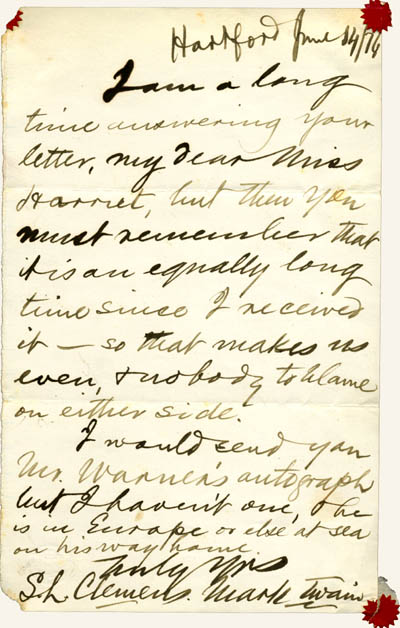 Hartford June 14/76
I am a long
time answering your
letter, my dear Miss
Harriet, but then you
must remember that
it is an equally long
time since I received
it — so that makes us
even, & nobody to blame
on either side.
I would send you
Mr. Warner's autograph
but I haven't one, & he
is in Europe or else at sea
on his way home.
Truly Yrs
S. L. Clemens. Mark Twain